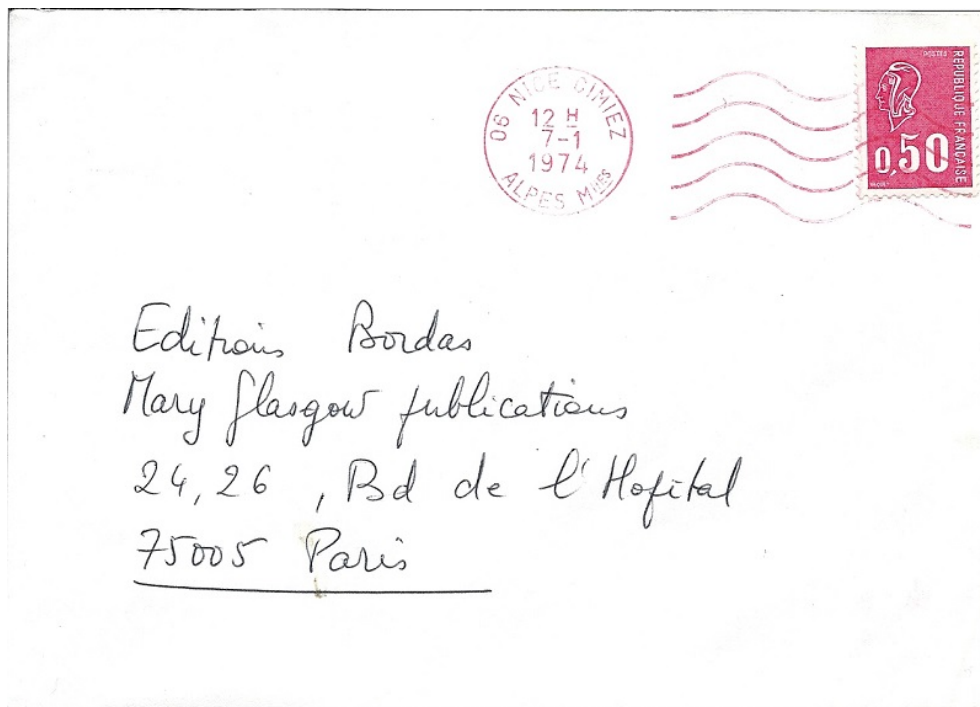 06 NICE CIMIEZ
12 H
7-1
1974
ALPES MMES
REPUBLIQUE FRANÇAISE
0,50
Editions Bordas
Mary Glasgow publications
24, 26, Bd de l'Hopital
75005 Paris